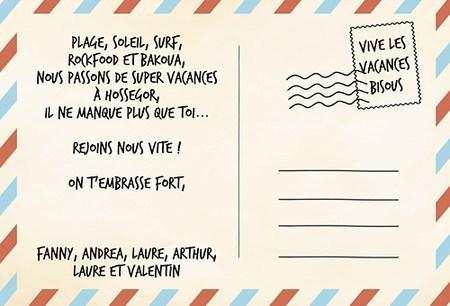 PLAGE, SOLEIL, SURF,
ROCKFOOD ET BAKOUA,
NOUS PASSONS DE SUPER VACANCES
À HOSSEGOR,
IL NE MANQUE PLUS QUE TOI...
REJOINS NOUS VITE !
ON T'EMBRASSE FORT,
FANNY, ANDREA, LAURE, ARTHUR,
LAURE ET VALENTIN
VIVE LES
VACANCES
BISOUS